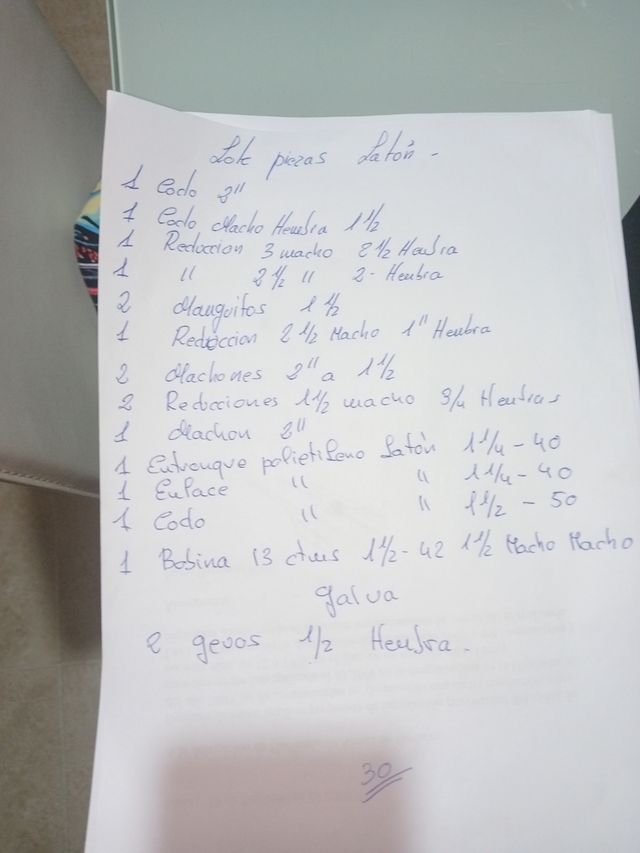 Lote piezas Latón -
1 Codo 3"
1 Codo Macho Hembra 1 1/2
1 Reduccion 3 macho 2 1/2 Hembra
1 " 2 1/2 " 2 - Hembra
2 Manguitos 1 1/2
1 Reduccion 2 1/2 Macho 1" Hembra
2 Machones 2" a 1 1/2
2 Reducciones 1 1/2 macho 3/4 Hembras
1 Machon 2"
1 Entronque polietileno Latón 1 1/4 - 40
1 Enlace " " 1 1/4 - 40
1 Codo " " 1 1/2 - 50
1 Bobina 13 ctms 1 1/2 - 42 1 1/2 Macho Macho
galva
2 gevos 1/2 Hembra.
30